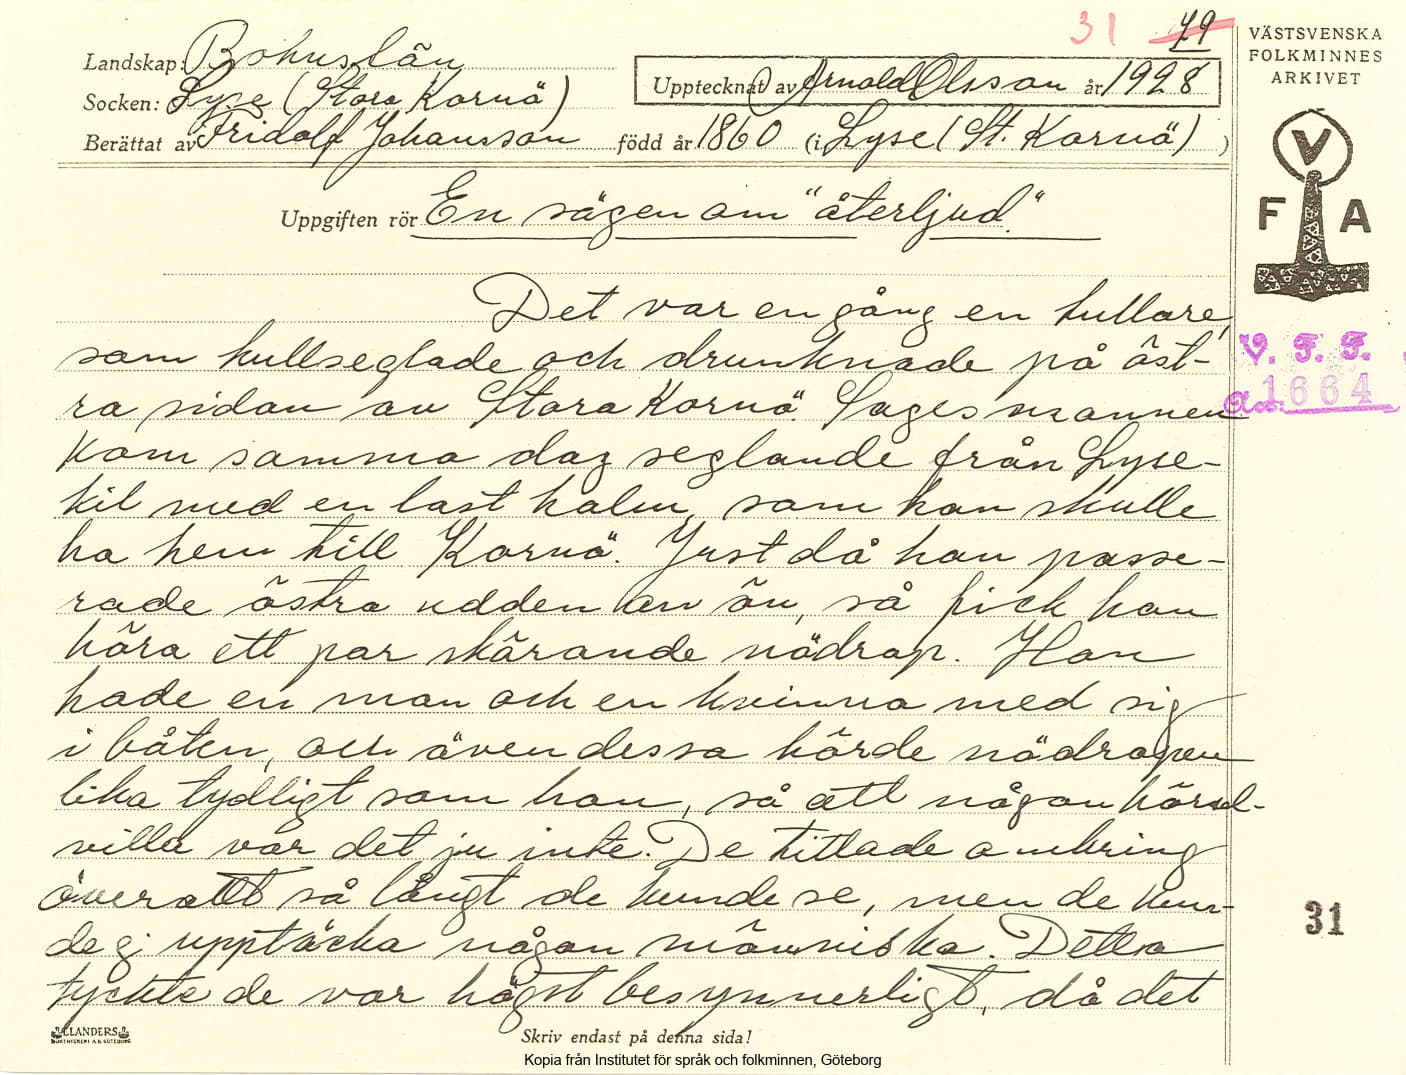 31 79
Landskap: Bohuslän
Socken: Lyse (Stora Kornö)
Upptecknat av Arnold Olsson år 1928
Berättat av Fridolf Johansson född år 1860 (i Lyse (St. Kornö) )
VÄSTSVENSKA
FOLKMINNES
ARKIVET
V
F A
Uppgiften rör En sägen om "återljud."
Det var en gång en tullare,
som kullseglade och drunknade på öst-
ra sidan av Stora Kornö. Sagesmannen
kom samma dag seglande från Lyse-
kil med en last halm, som han skulle
ha hem till Kornö. Just då han passe-
rade östra udden av ön, så fick han
höra ett par skärande nödrop. Han
hade en man och en kvinna med sig
i båten, och även dessa hörde nödropen
lika tydligt som han, så att någon hörsel-
villa var det ju inte. De tittade omkring
överallt så långt de kunde se, men de kun-
de ej upptäcka någon människa. Detta
tyckte de var högst besynnerligt, då det
V. F. F.
Acc. 1664
31
ELANDERS
BOKTRYCKERI A.B. GÖTEBORG
Skriv endast på denna sida!
Kopia från Institutet för språk och folkminnen, Göteborg